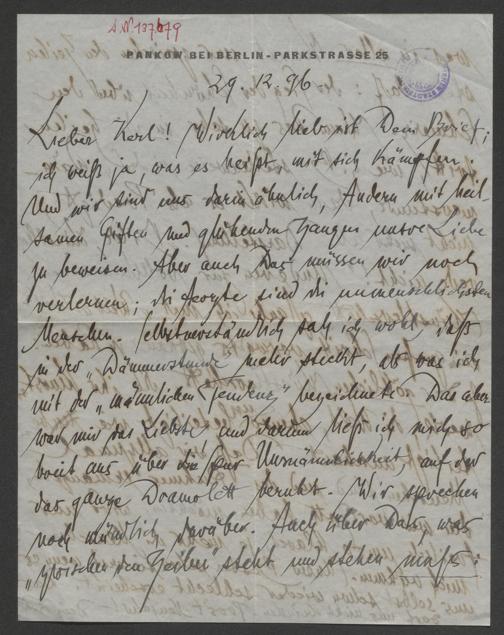 A.N 137.079
PANKOW BEI BERLIN - PARKSTRASSE 25
29 12. 96
Lieber Kerl! Wirklich lieb ist Dein Brief;
ich weiß ja, was es heißt, mit sich kämpfen.
Und wir sind uns darin ähnlich, Andern mit heil-
samen Giften und glühenden Zangen unsre Liebe
zu beweisen. Aber auch Das müssen wir noch
verlernen; die Aerzte sind die unmenschlichsten
Menschen. Selbstverständlich sah ich wohl, daß
in der „Dämmerstunde" mehr steckt, als was ich
mit der „männlichen Tendenz" bezeichnete. Das aber
war mir das Liebste und darum ließ ich mich so
breit aus über die Unmännlichkeit, auf der
das ganze Dramolett beruht. Wir sprechen
noch mündlich darüber. Auch über Das, was
„zwischen den Zeilen" steht und stehen muß: